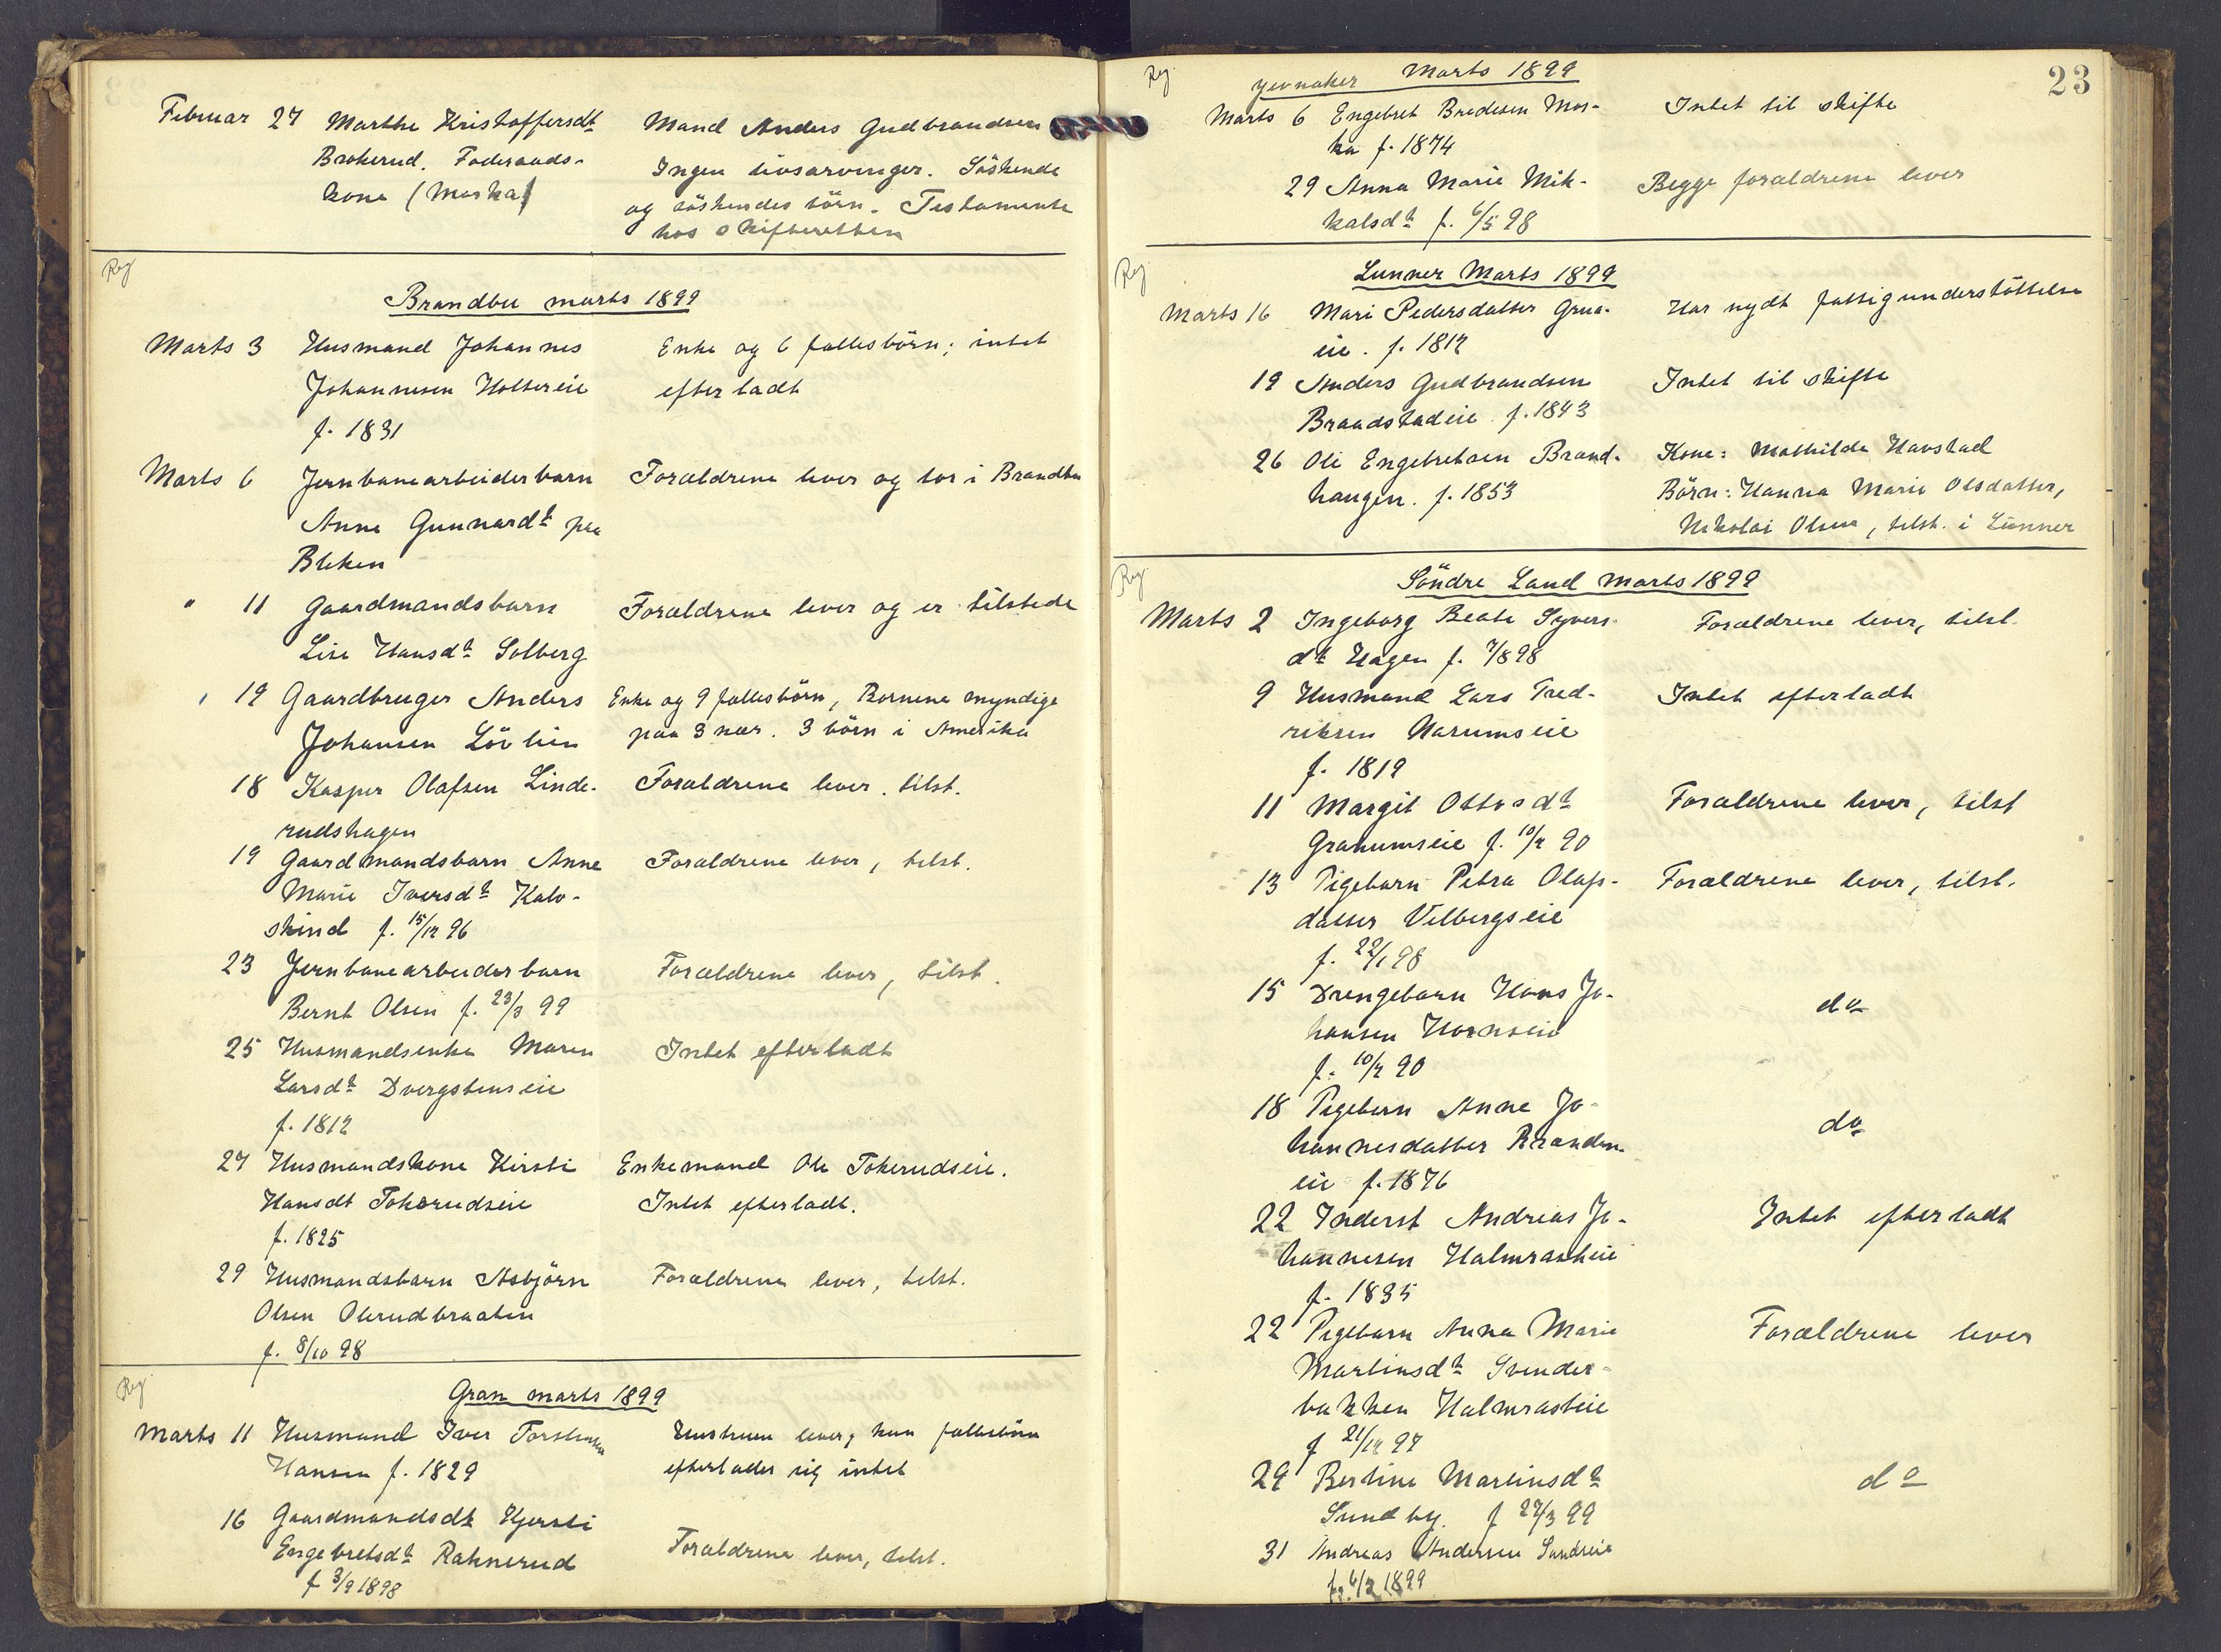 Februar 27 Marthe Kristoffersdt Mand Anders Gudbrandsen
Brokerud. Föderaads- Ingen livsarvinger. Söskende
kone (Moska) og söskendes börn. Testamente
hos skifteretten
Reg
Brandbu marts 1899
Marts 3 Husmand Johannes Enke og 6 fællesbörn; intet
Johannesen Holtereie efterladt
f. 1831
Marts 6 Jernbanearbeiderbarn Forældrene lever og bor i Brandbu
Anne Gunnardt paa
Bleken
" 11 Gaardmandsbarn Forældrene lever og er tilstede
Lise Hansdt Solberg
" 19 Gaardbruger Anders Enke og 9 fællesbörn, Börnene myndige
Johansen Lövlien paa 3 nær. 3 börn i Amerika
18 Kasper Olafsen Linde- Forældrene lever. tilst.
rudshagen
19 Gaardmandsbarn Anne Forældrene lever, tilst.
Marie Iversdt Kalv-
skind f. 15/12 96
23 Jernbanearbeiderbarn Forældrene lever, tilst.
Bernt Olsen f. 23/3 99
25 Husmandsenke Maren Intet efterladt
Larsdt Dvergsteneie
f. 1812
27 Husmandskone Kirsti Enkemand Ole Tokerudseie.
Hansdt Tokerudseie Intet efterladt.
f. 1825
29 Husmandsbarn Asbjörn Forældrene lever, tilst.
Olsen Olerudbraaten
f. 8/10 98
Reg.
Gran marts 1899
Marts 11 Husmand Iver Torstensen Hustruen lever, kun fællesbörn
Hansen f. 1829 efterlader sig intet
16 Gaardmandsdt Kjersti
Engebretsdt Raknerud Forældrene lever, tilst.
f 3/9 1898
23
Reg.
Jevnaker Marts 1899
Marts 6 Engebret Bredesen Mos- Intet til skifte
ka f. 1874
29 Anna Marie Mik- Begge forældrene lever
kalsdt f. 6/5 98
Reg.
Lunner Marts 1899
Marts 16 Mari Pedersdatter Grua- Har nydt fattigunderstöttelse
eie. f. 1812
19 Anders Gudbrandsen Intet til skifte
Braadstadeie f. 1843
26 Ole Engebretsen Brand- Kone: Mathilde Havstad
haugen. f. 1853 Börn: Hanna Marie Olsdatter,
Nikolai Olsen, tilst. i Lunner
Reg.
Söndre Land Marts 1899
Marts 2 Ingeborg Beate Syvers- Forældrene lever, tilst.
dt Hagen f. 7/8 98
9 Husmand Lars Fred- Intet efterladt
riksen Narumseie
f. 1819
11 Margit Ottosdt Forældrene lever, tilst
Granumseie f. 10/2 90
13 Pigebarn Petra Olaf- Forældrene lever, tilst.
datter Velbergseie
f. 22/1 98
15 Drengebarn Hans Jo- do
hansen Hornseie
f. 10/2 90
18 Pigebarn Anne Jo- do
hannesdatter Branden-
eie f. 1876
22 Inderst Andreas Jo- Intet efterladt
hannesen Halmrasteie
f. 1835
22 Pigebarn Anna Marie Forældrene lever
Martinsdt Svender-
bakken Halmrasteie
f 21/12 97
29 Bertine Martinsdt do
Sundby. f 27/3 99
31 Andreas Andersen Sandseie
f. 6/2 1899